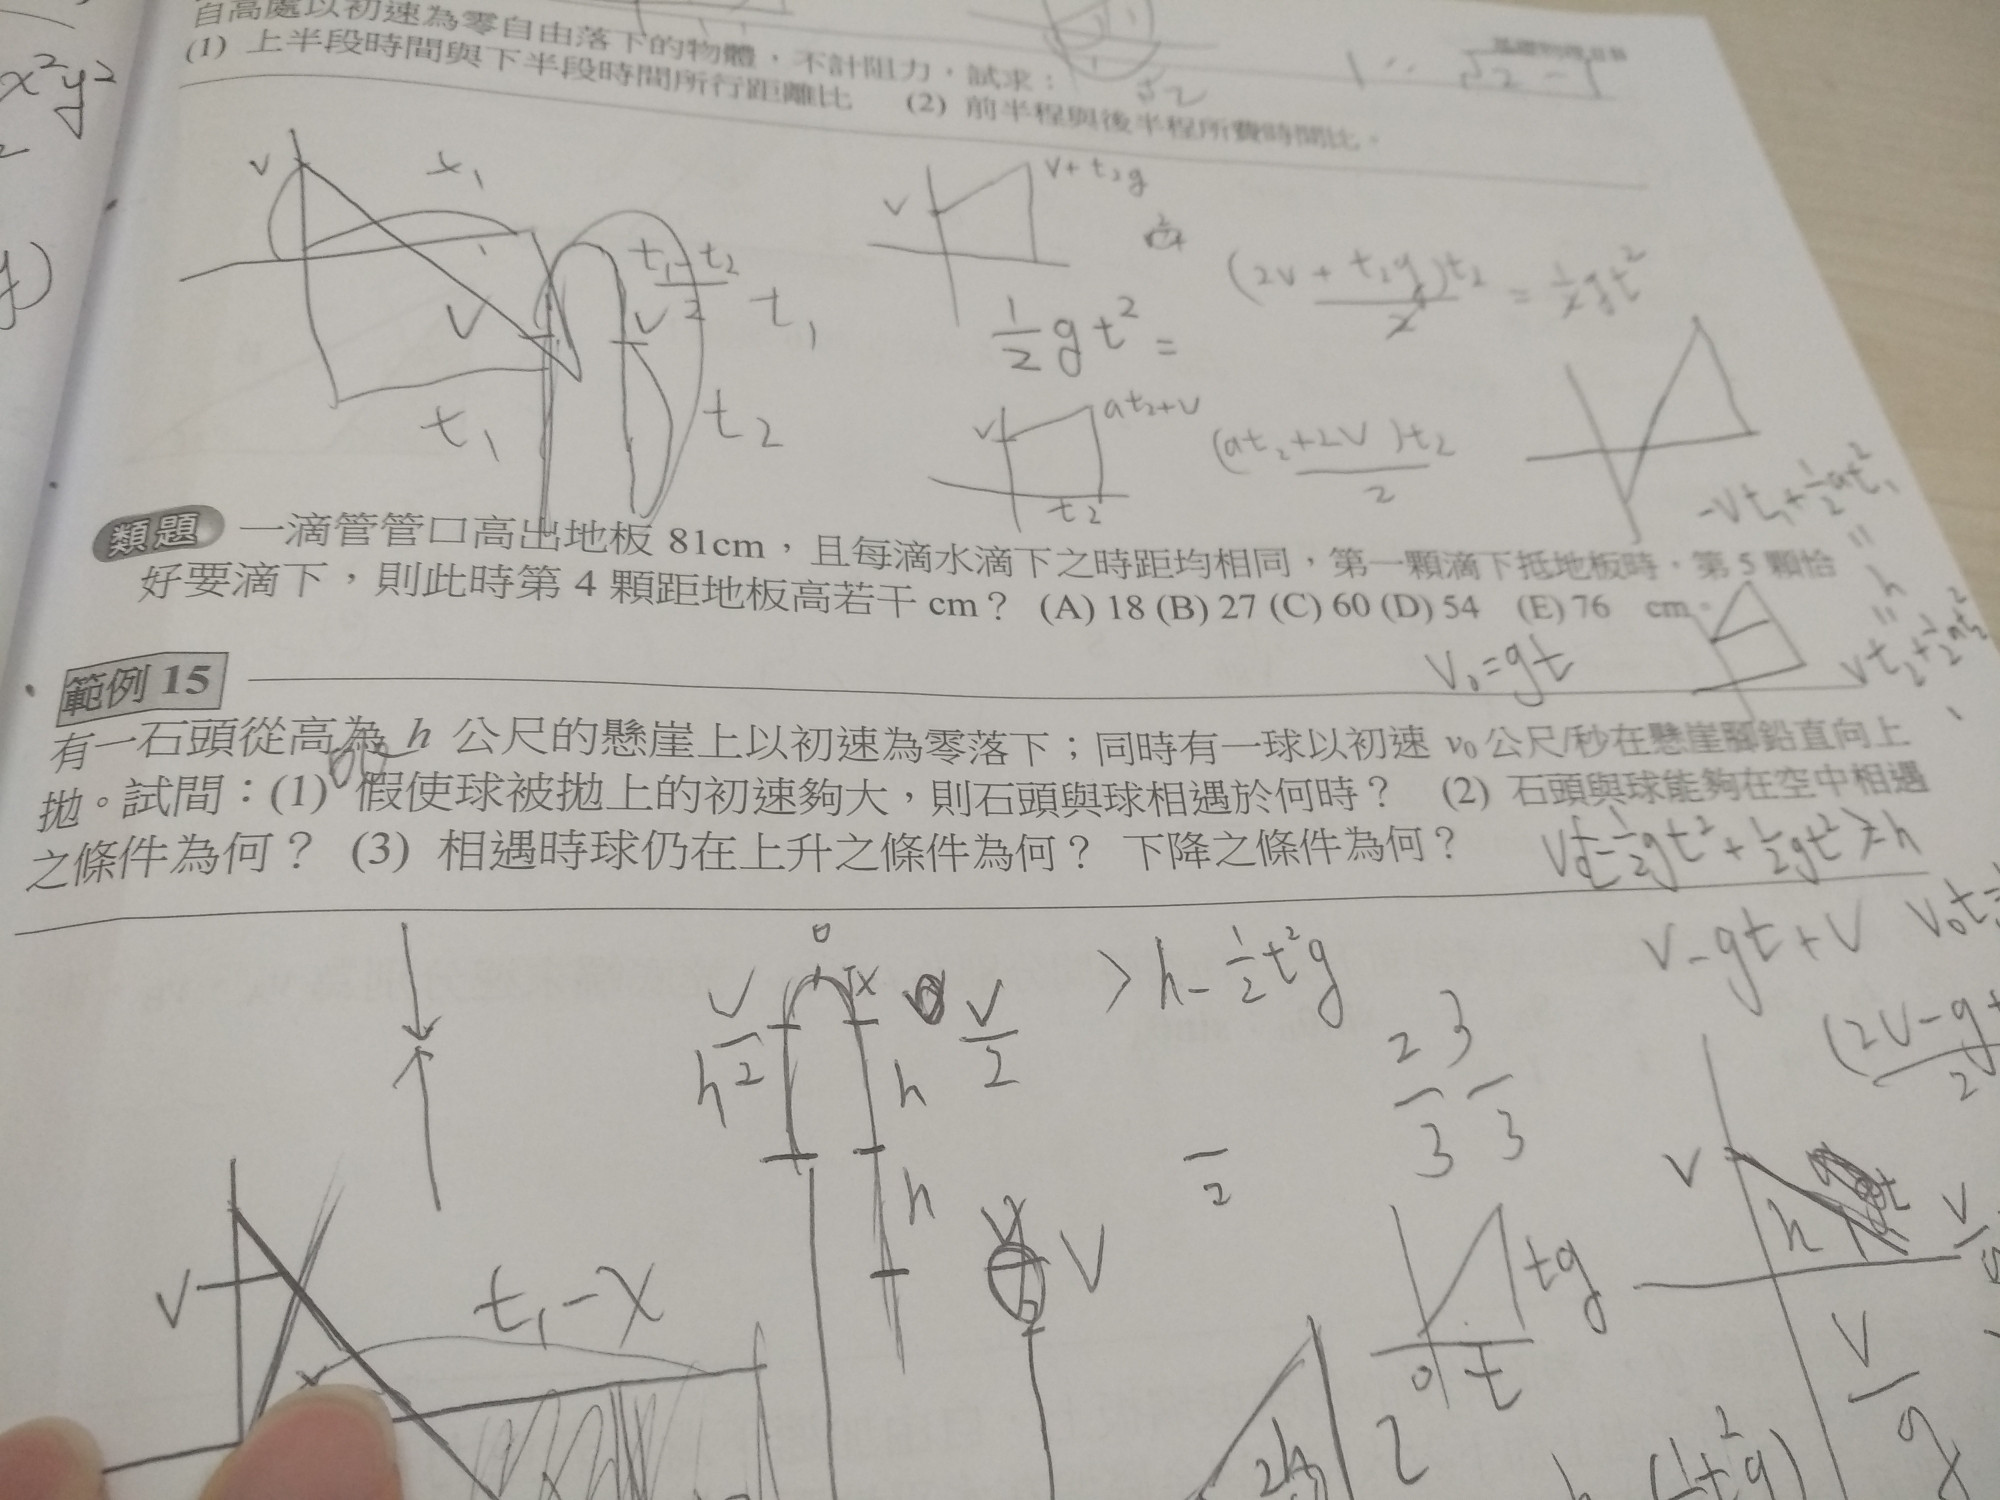 自高處以初速為零自由落下的物體,不計阻力,試求:
(1) 上半段時間與下半段時間所行距離比 (2) 前半程與後半程所費時間比。
x²y²
√2
1 : √2 - 1
v
x₁
t₁
v
v
t₁ - t₂
2
t₁
t₂
v
v + t₂g
1/2 gt² =
(2v + t₂g)t₂ / 2 = 1/2 gt²
v
at₂+v
t₂
(at₂+2v)t₂ / 2
-vt₁+1/2at₁²
=
h
=
vt₂+1/2at₂²
類題 一滴管管口高出地板 81cm,且每滴水滴下之時距均相同,第一顆滴下抵地板時,第 5 顆恰
好要滴下,則此時第 4 顆距地板高若干 cm? (A) 18 (B) 27 (C) 60 (D) 54 (E) 76 cm。
V₀=gt
範例 15
有一石頭從高為 h 公尺的懸崖上以初速為零落下;同時有一球以初速 v₀ 公尺/秒在懸崖腳鉛直向上
拋。試問:(1) 假使球被拋上的初速夠大,則石頭與球相遇於何時? (2) 石頭與球能夠在空中相遇
之條件為何? (3) 相遇時球仍在上升之條件為何? 下降之條件為何?
Vt-1/2gt²+1/2gt² ≥ h
0
v/2
x
v/2
> h - 1/2t²g
v-gt+v
v₀t
h
h
h
2/3
3/3
(2v-gt
2
v
h
v
v
t₁-x
x
v
tg
0
t
v/g
2h
2